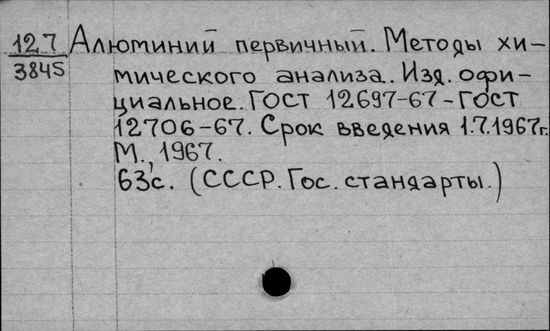 127 Алюминий первичный. Методы хи-
3845 мического анализа. Изд. офи-
циальное. ГОСТ 12697-67-ГОСТ
12706-67. Срок введения 1.7.1967г.
М., 1967.
63с. (СССР. Гос. стандарты.)